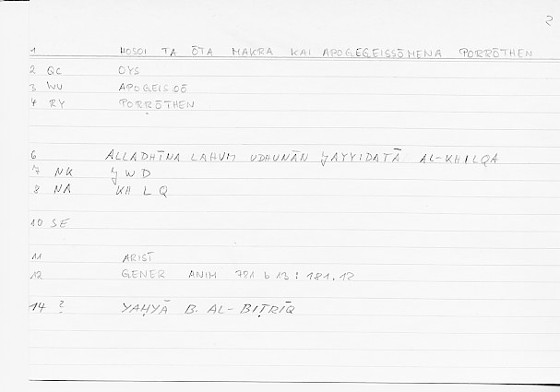 2
1 HOSOI TA ŌTA MAKRA KAI APOGEGEISSŌMENA PORRŌTHEN
2 QC OYS
3 WU APOGEISOŌ
4 RY PORRŌTHEN
6 ALLADHĪNA LAHUM UDHUNĀN ǦAYYIDATĀ AL-KHILQA
7 NK ǦWD
8 NA KHLQ
10 SE
11 ARIST
12 GENER ANIM 781 b 13 : 181.12
14 ? YAḤYĀ B. AL-BIṬRĪQ